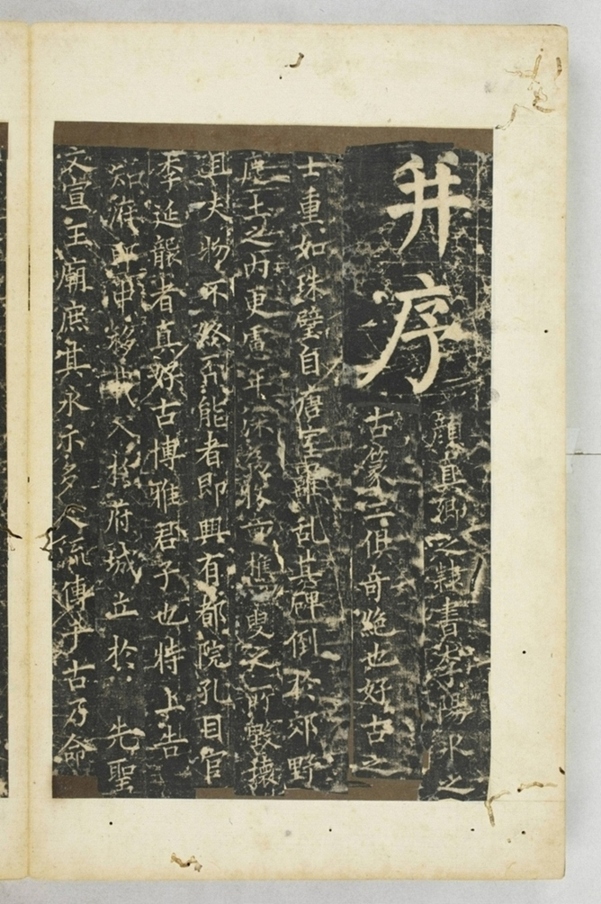 并序
顔真卿之隸書李陽氷之
古篆二俱奇絶也好古之
士重如珠璧自唐室離乱其碑倒於郊野
塵土之內更慮年深為牧童樵叟之所毀壞
且夫物不終否能者即興有都院孔目官
李延襲者真好古博雅君子也特上告
知府郎中移載入於府城立於 先聖
文宣王廟庶其永示多人流傳千古乃命